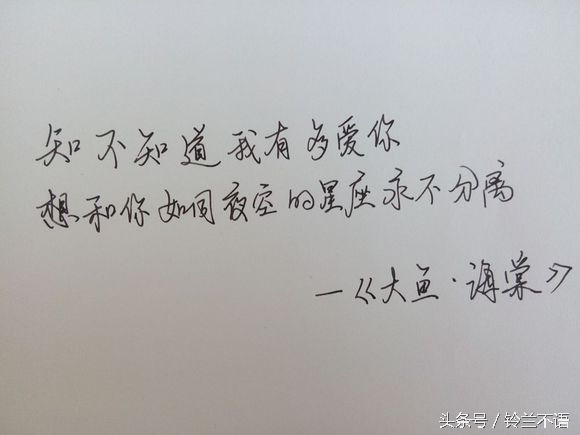 知不知道我有多爱你
想和你如同夜空的星座永不分离
—《大鱼·海棠》
头条号／铃兰不语